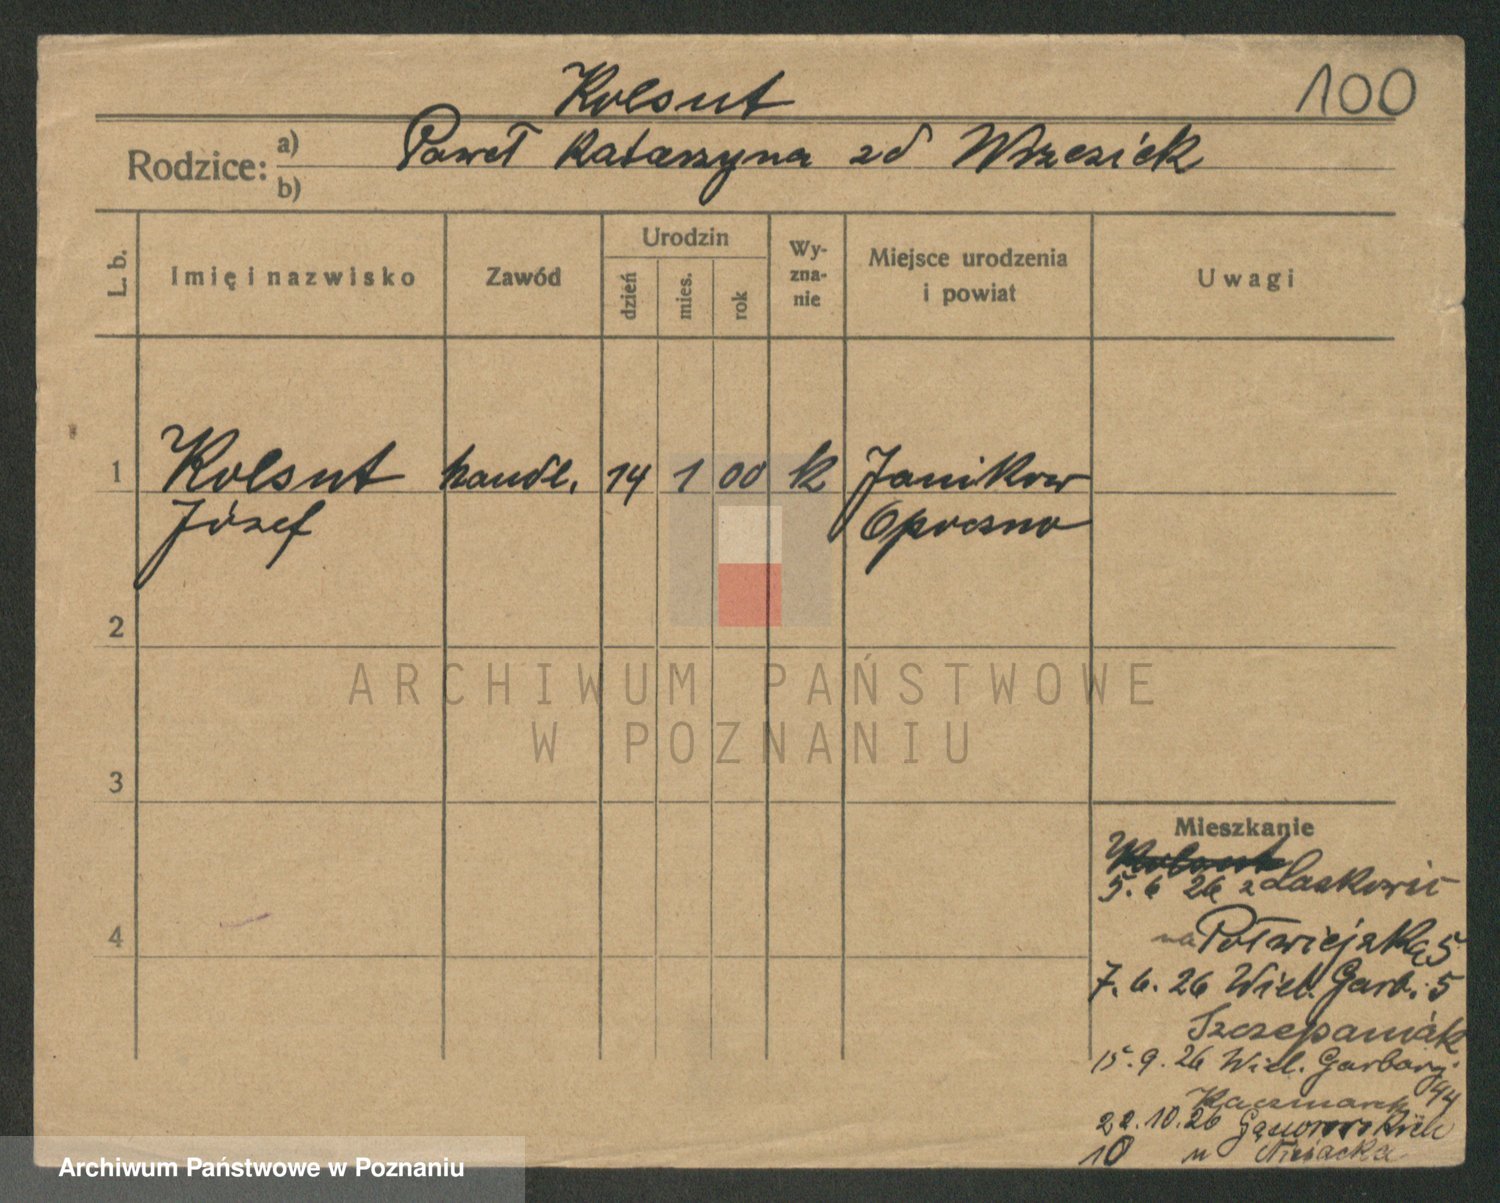 Kolsut
100
Rodzice: a) Paweł Katarzyna zd Wrzesiek
b)
L. b. Imię i nazwisko Zawód Urodzin dzień mies. rok Wy-zna-nie Miejsce urodzenia i powiat Uwagi
1 Kolsut handl. 14 1 00 k Janikow
Józef Opoczno
2
ARCHIWUM PAŃSTWOWE
W POZNANIU
3
Mieszkanie
5. 6 26 z Laskowic
4
na Półwiejska 5
7. 6. 26 Wiel. Garb. 5
Szczepaniak
15. 9. 26 Wiel. Garbary
44
Kaczmarek
22. 10. 26
10 u
Archiwum Państwowe w Poznaniu